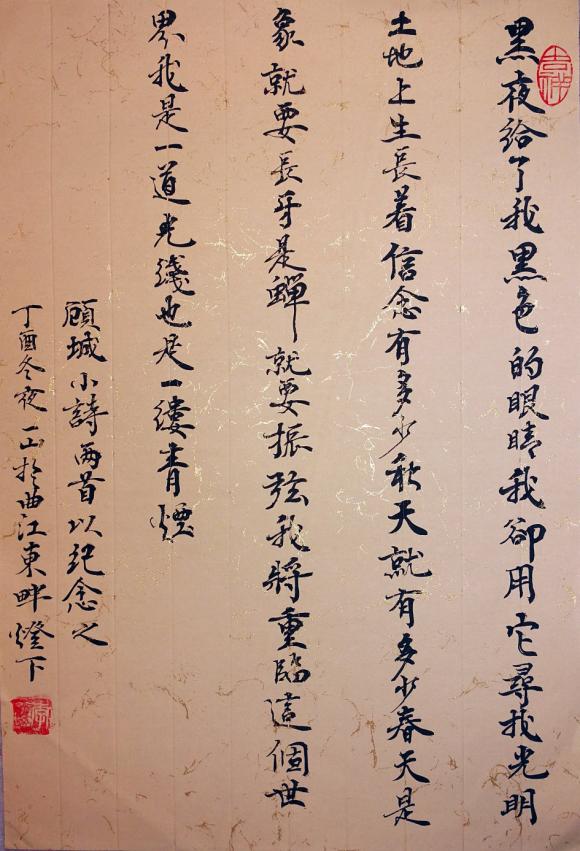 黑夜給了我黑色的眼睛我卻用它尋找光明
土地上生長着信念有多少秋天就有多少春天是
象就要長牙是蟬就要振弦我將重臨這個世
界我是一道光綫也是一缕青煙
顾城小詩两首以紀念之
丁酉冬夜一山於曲江東畔燈下